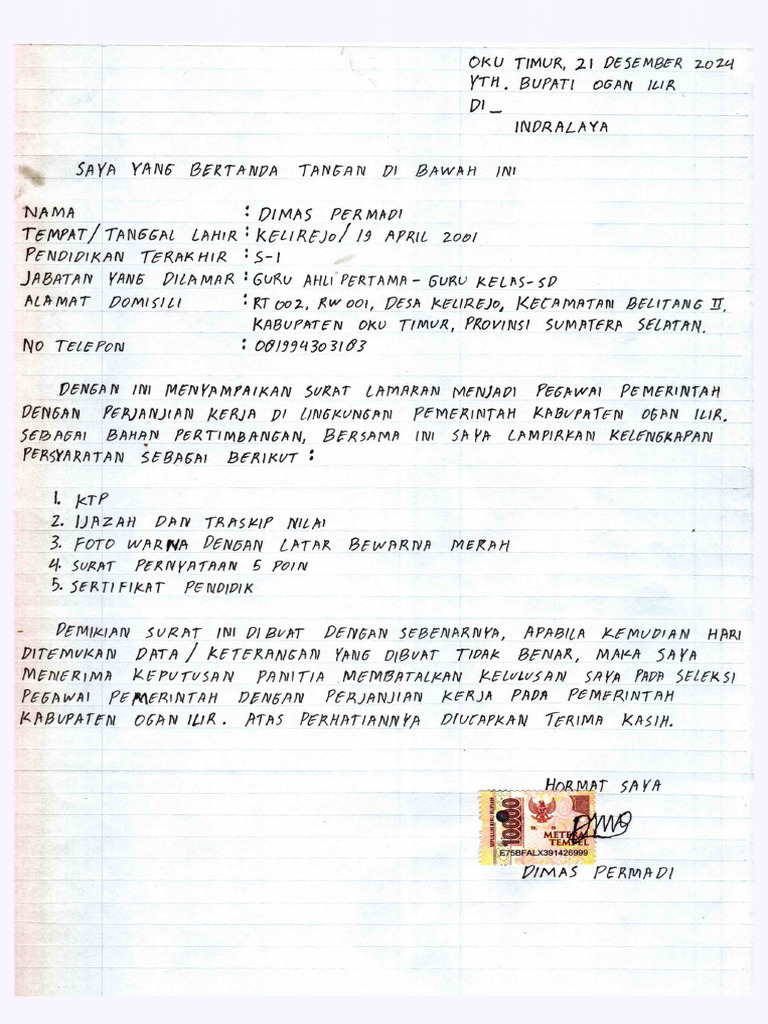 OKU TIMUR, 21 DESEMBER 2024
YTH. BUPATI OGAN ILIR
DI_
INDRALAYA
SAYA YANG BERTANDA TANGAN DI BAWAH INI
NAMA : DIMAS PERMADI
TEMPAT/TANGGAL LAHIR : KELIREJO/19 APRIL 2001
PENDIDIKAN TERAKHIR : S-1
JABATAN YANG DILAMAR : GURU AHLI PERTAMA - GURU KELAS-SD
ALAMAT DOMISILI : RT 002, RW 001, DESA KELIREJO, KECAMATAN BELITANG II,
KABUPATEN OKU TIMUR, PROVINSI SUMATERA SELATAN.
NO TELEPON : 081994303183
DENGAN INI MENYAMPAIKAN SURAT LAMARAN MENJADI PEGAWAI PEMERINTAH
DENGAN PERJANJIAN KERJA DI LINGKUNGAN PEMERINTAH KABUPATEN OGAN ILIR.
SEBAGAI BAHAN PERTIMBANGAN, BERSAMA INI SAYA LAMPIRKAN KELENGKAPAN
PERSYARATAN SEBAGAI BERIKUT :
1. KTP
2. IJAZAH DAN TRASKIP NILAI
3. FOTO WARNA DENGAN LATAR BEWARNA MERAH
4. SURAT PERNYATAAN 5 POIN
5. SERTIFIKAT PENDIDIK
DEMIKIAN SURAT INI DIBUAT DENGAN SEBENARNYA, APABILA KEMUDIAN HARI
DITEMUKAN DATA / KETERANGAN YANG DIBUAT TIDAK BENAR, MAKA SAYA
MENERIMA KEPUTUSAN PANITIA MEMBATALKAN KELULUSAN SAYA PADA SELEKSI
PEGAWAI PEMERINTAH DENGAN PERJANJIAN KERJA PADA PEMERINTAH
KABUPATEN OGAN ILIR. ATAS PERHATIANNYA DIUCAPKAN TERIMA KASIH.
HORMAT SAYA
10000
METERAI
TEMPEL
E75BFALX391426999
DIMAS PERMADI